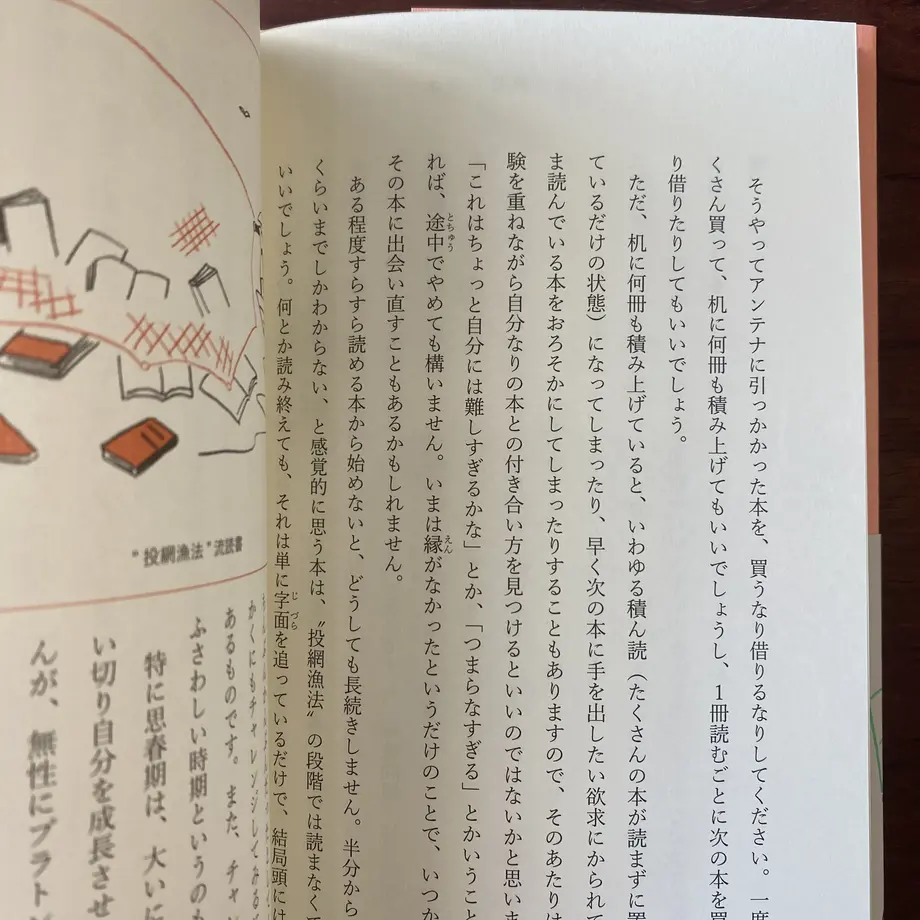 そうやってアンテナに引っかかった本を、買うなり借りるなりしてください。一度
くさん買って、机に何冊も積み上げてもいいでしょうし、１冊読むごとに次の本を買
り借りたりしてもいいでしょう。
ただ、机に何冊も積み上げていると、いわゆる積ん読（たくさんの本が読まずに置
ているだけの状態）になってしまったり、早く次の本に手を出したい欲求にかられて
ま読んでいる本をおろそかにしてしまったりすることもありますので、そのあたりは
験を重ねながら自分なりの本との付き合い方を見つけるといいのではないかと思いま
「これはちょっと自分には難しすぎるかな」とか、「つまらなすぎる」とかいうこと
れば、途中でやめても構いません。いまは縁がなかったというだけのことで、いつか
その本に出会い直すこともあるかもしれません。
ある程度すらすら読める本から始めないと、どうしても長続きしません。半分から
くらいまでしかわからない、と感覚的に思う本は、〝投網漁法〟の段階では読まなくて
いいでしょう。何とか読み終えても、それは単に字面を追っているだけで、結局頭には
“投網漁法”流読書
かくにもチャレンジしてみる
あるものです。また、チャレ
ふさわしい時期というのも
特に思春期は、大いに
い切り自分を成長させ
んが、無性にプラト